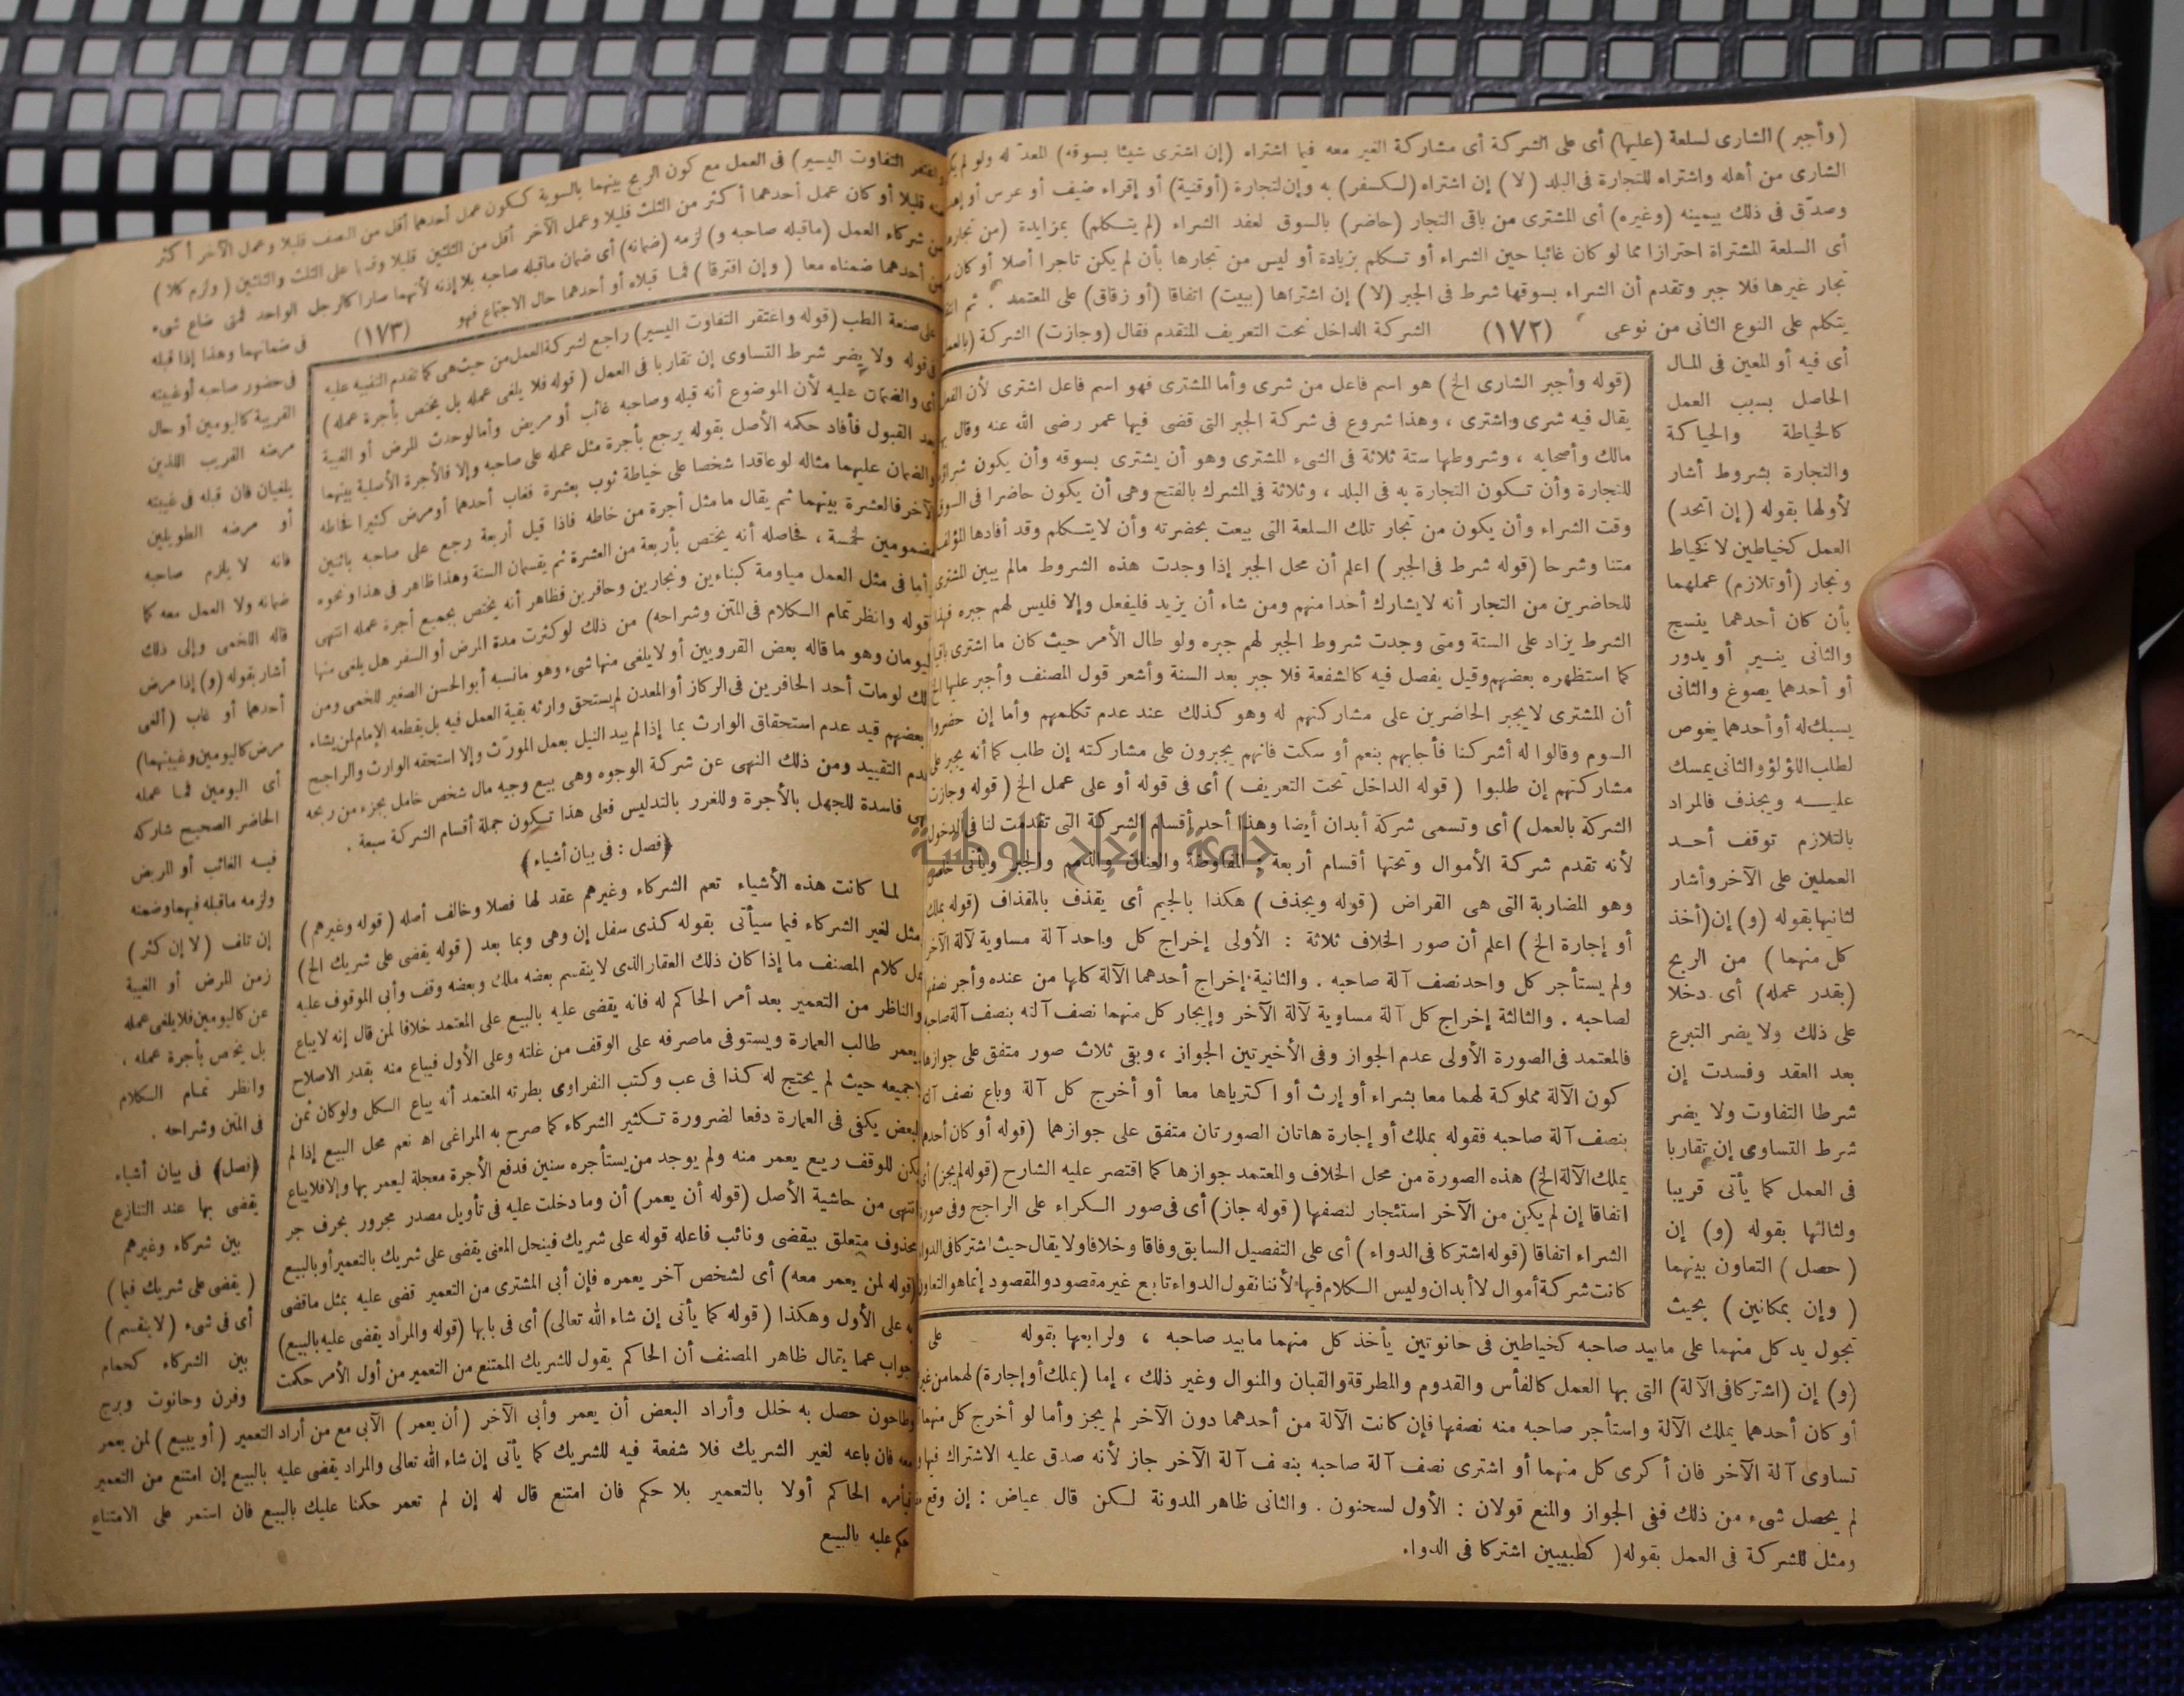 (وأجبر) الشارى لسلعة (عليها) أى على الشركة أى مشاركة الغير معه فيما اشتراه (إن اشترى شيئا بسوقه) المعدّ له ولو لم
الشارى من أهله واشتراه للتجارة فى البلد (لا) إن اشتراه (لكسفر) به وإن لتجارة (أوقنية) أو إقراء ضيف أو عرس أو
وصدّق فى ذلك بيمينه (وغيره) أى المشترى من باقى التجار (حاضر) بالسوق لعقد الشراء (لم يتكلم) بمزايدة (من تجاره
أى السلعة المشتراة احترازا مما لو كان غائبا حين الشراء أو تكلم بزيادة أو ليس من تجارها بأن لم يكن تاجرا أصلا أو كان
تجار غيرها فلا جبر وتقدم أن الشراء بسوقها شرط فى الجبر (لا) إن اشتراها (ببيت) اتفاقا (أو زقاق) على المعتمد . ثم
يتكلم على النوع الثانى من نوعى (١٧٢) الشركة الداخل تحت التعريف المتقدم فقال (وجازت) الشركة (بالعمل
أى فيه أو المعين فى المال
الحاصل بسبب العمل
كالخياطة والحياكة
والتجارة بشروط أشار
لأولها بقوله (إن اتحد)
العمل كخياطين لا كخياط
ونجار (أو تلازم) عملهما
بأن كان أحدهما ينسج
والثانى ينير أو يدور
أو أحدهما يصوغ والثانى
يسبك له أو أحدهما يغوص
لطلب اللؤلؤ والثانى يمسك
عليه ويجذف فالمراد
بالتلازم توقف أحد
العملين على الآخر وأشار
لثانيها بقوله (و) إن (أخذ
كل منهما) من الربح
(بقدر عمله) أى دخلا
على ذلك ولا يضر التبرع
بعد العقد وفسدت إن
شرطا التفاوت ولا يضر
شرط التساوى إن تقاربا
فى العمل كما يأتى قريبا
ولثالثها بقوله (و) إن
(حصل) التعاون بينهما
(وإن بمكانين) بحيث
(قوله وأجبر الشارى الخ) هو اسم فاعل من شرى وأما المشترى فهو اسم فاعل اشترى لأن الفعل
يقال فيه شرى واشترى ، وهذا شروع فى شركة الجبر التى قضى فيها عمر رضى الله عنه وقال
مالك وأصحابه ، وشروطها ستة ثلاثة فى الشىء المشترى وهو أن يشترى بسوقه وأن يكون شراؤه
للتجارة وأن تكون التجارة به فى البلد ، وثلاثة فى المشرك بالفتح وهى أن يكون حاضرا فى السوق
وقت الشراء وأن يكون من تجار تلك السلعة التى بيعت بحضرته وأن لا يتكلم وقد أفادها المؤلف
متنا وشرحا (قوله شرط فى الجبر) اعلم أن محل الجبر إذا وجدت هذه الشروط مالم يبين المشترى
للحاضرين من التجار أنه لا يشارك أحدا منهم ومن شاء أن يزيد فليفعل وإلا فليس لهم جبره فهذا
الشرط يزاد على الستة ومتى وجدت شروط الجبر لهم جبره ولو طال الأمر حيث كان ما اشترى باقيا
كما استظهره بعضهم وقيل يفصل فيه كالشفعة فلا جبر بعد السنة وأشعر قول المصنف وأجبر عليها الخ
أن المشترى لا يجبر الحاضرين على مشاركتهم له وهو كذلك عند عدم تكلمهم وأما إن حضروا
السوم وقالوا له أشركنا فأجابهم بنعم أو سكت فانهم يجبرون على مشاركته إن طلب كما أنه يجبر على
مشاركتهم إن طلبوا (قوله الداخل تحت التعريف) أى فى قوله أو على عمل الخ (قوله وجازت
الشركة بالعمل) أى وتسمى شركة أبدان أيضا وهذا أحد أقسام الشركة التى تقدمت لنا فى الدخول
لأنه تقدم شركة الأموال وتحتها أقسام أربعة : المفاوضة والعنان والذمم والجبر ويأتى
وهو المضاربة التى هى القراض (قوله ويجذف) هكذا بالجيم أى يقذف بالمقذاف (قوله بملك
أو إجارة الخ) اعلم أن صور الخلاف ثلاثة : الأولى إخراج كل واحد آلة مساوية لآلة الآخر
ولم يستأجر كل واحد نصف آلة صاحبه . والثانية إخراج أحدهما الآلة كلها من عنده وأجر نصفها
لصاحبه . والثالثة إخراج كل آلة مساوية لآلة الآخر وإيجار كل منهما نصف آلته بنصف آلة صاحبه
فالمعتمد فى الصورة الأولى عدم الجواز وفى الأخيرتين الجواز ، وبقى ثلاث صور متفق على جوازها
كون الآلة مملوكة لهما معا بشراء أو إرث أو اكترياها معا أو أخرج كل آلة وباع نصف
بنصف آلة صاحبه فقوله بملك أو إجارة هاتان الصورتان متفق على جوازهما (قوله أو كان أحدهما
يملك الآلة الخ) هذه الصورة من محل الخلاف والمعتمد جوازها كما اقتصر عليه الشارح (قوله لم يجز) أى
اتفاقا إن لم يكن من الآخر استئجار لنصفها (قوله جاز) أى فى صور الكراء على الراجح وفى صورة
الشراء اتفاقا (قوله اشتركا فى الدواء) أى على التفصيل السابق وفاقا وخلافا ولا يقال حيث اشتركا فى الدواء
كانت شركة أموال لا أبدان وليس الكلام فيها لأننا نقول الدواء تابع غير مقصود والمقصود إنما هو التعاون
على
تجول يد كل منهما على ما بيد صاحبه كخياطين فى حانوتين يأخذ كل منهما ما بيد صاحبه ، ولرابعها بقوله
(و) إن (اشتركا فى الآلة) التى بها العمل كالفأس والقدوم والمطرقة والقبان والمنوال وغير ذلك ، إما (بملك أو إجارة) لهما من غير
أو كان أحدهما يملك الآلة واستأجر صاحبه منه نصفها فإن كانت الآلة من أحدهما دون الآخر لم يجز وأما لو أخرج كل منهما
تساوى آلة الآخر فان أكرى كل منهما أو اشترى نصف آلة صاحبه بنصف آلة الآخر جاز لأنه صدق عليه الاشتراك فيها
لم يحصل شىء من ذلك ففى الجواز والمنع قولان : الأول لسحنون . والثانى ظاهر المدونة لكن قال عياض : إن وقع
ومثل للشركة فى العمل بقوله (كطبيبين اشتركا فى الدواء
واغتفر التفاوت اليسير) فى العمل مع كون الربح بينهما بالسوية ككون عمل أحدهما أقل من النصف قليلا وعمل الآخر أكثر
منه قليلا أو كان عمل أحدهما أكثر من الثلث قليلا وعمل الآخر أقل من الثلثين قليلا وقدما على الثلث والثلثين (ولزم كلا)
من شركاء العمل (ما قبله صاحبه و) لزمه (ضمانه) أى ضمان ما قبله صاحبه بلا إذنه لأنهما صارا كالرجل الواحد فمتى ضاع شىء
من أحدهما ضمناه معا (وإن افترقا) فما قبلاه أو أحدهما حال الاجتماع فهو (١٧٣) فى ضمانهما وهذا إذا قبله
فى حضور صاحبه أو غيبته
القريبة كاليومين أو حال
مرضه القريب اللذين
يلغيان فان قبله فى غيبته
أو مرضه الطويلين
فانه لا يلزم صاحبه
ضمانه ولا العمل معه كما
قاله اللخمى وإلى ذلك
أشار بقوله (و) إذا مرض
أحدهما أو غاب (ألغى
مرض كاليومين وغيبتهما)
أى اليومين فما عمله
الحاضر الصحيح شاركه
فيه الغائب أو المريض
ولزمه ما قبله فيهما وضمنه
إن تلف (لا إن كثر)
زمن المرض أو الغيبة
عن كاليومين فلا يلغى عمله
بل يختص بأجرة عمله ،
وانظر تمام الكلام
فى المتن وشراحه .
(فصل) فى بيان أشياء
يقضى بها عند التنازع
بين شركاء وغيرهم
(يقضى على شريك فيما)
أى فى شىء (لا ينقسم)
بين الشركاء كحمام
وفرن وحانوت وبرج
على صنعة الطب (قوله واغتفر التفاوت اليسير) راجع لشركة العمل من حيث هى كما تقدم التنبيه عليه
فى قوله ولا يضر شرط التساوى إن تقاربا فى العمل (قوله فلا يلغى عمله بل يختص بأجرة عمله)
أى والضمان عليه لأن الموضوع أنه قبله وصاحبه غائب أو مريض وأما لو حدث المرض أو الغيبة
بعد القبول فأفاد حكمه الأصل بقوله يرجع بأجرة مثل عمله على صاحبه وإلا فالأجرة الأصلية بينهما
والضمان عليهما مثاله لو عاقدا شخصا على خياطة ثوب بعشرة فغاب أحدهما أو مرض كثيرا فخاطه
الآخر فالعشرة بينهما ثم يقال ما مثل أجرة من خاطه فاذا قيل أربعة رجع على صاحبه باثنين
مضمومين لخمسة ، فحاصله أنه يختص بأربعة من العشرة ثم يقسمان الستة وهذا ظاهر فى هذا ونحوه
وأما فى مثل العمل مياومة كبناءين ونجارين وحافرين فظاهر أنه يختص بجميع أجرة عمله انتهى
(قوله وانظر تمام الكلام فى المتن وشراحه) من ذلك لو كثرت مدة المرض أو السفر هل يلغى منها
اليومان وهو ما قاله بعض القرويين أو لا يلغى منها شىء وهو ما نسبه أبو الحسن الصغير للخمى ومن
ذلك لو مات أحد الحافرين فى الركاز أو المعدن لم يستحق وارثه بقية العمل فيه بل يقطعه الإمام لمن يشاء
بعضهم قيد عدم استحقاق الوارث بما إذا لم يبد النيل بعمل المورّث وإلا استحقه الوارث والراجح
عدم التقييد ومن ذلك النهى عن شركة الوجوه وهى بيع وجيه مال شخص خامل بجزء من ربحه
هى فاسدة للجهل بالأجرة وللغرر بالتدليس فعلى هذا تكون جملة أقسام الشركة سبعة .
(فصل : فى بيان أشياء)
لما كانت هذه الأشياء تعم الشركاء وغيرهم عقد لها فصلا وخالف أصله (قوله وغيرهم)
مثل لغير الشركاء فيما سيأتى بقوله كذى سفل إن وهى وبما بعد (قوله يقضى على شريك الخ)
كلام المصنف ما إذا كان ذلك العقار الذى لا ينقسم بعضه ملك وبعضه وقف وأبى الموقوف عليه
والناظر من التعمير بعد أمر الحاكم له فانه يقضى عليه بالبيع على المعتمد خلافا لمن قال إنه لا يباع
يعمر طالب العمارة ويستوفى ما صرفه على الوقف من غلته وعلى الأول فيباع منه بقدر الاصلاح
لا جميعه حيث لم يحتج له كذا فى عب وكتب النفراوى بطرته المعتمد أنه يباع الكل ولو كان ثمن
البعض يكفى فى العمارة دفعا لضرورة تكثير الشركاء كما صرح به المراغى اه نعم محل البيع إذا لم
يكن للوقف ريع يعمر منه ولم يوجد من يستأجره سنين فدفع الأجرة معجلة ليعمر بها وإلا فلا يباع
انتهى من حاشية الأصل (قوله أن يعمر) أن وما دخلت عليه فى تأويل مصدر مجرور بحرف جر
محذوف متعلق بيقضى ونائب فاعله قوله على شريك فينحل المعنى يقضى على شريك بالتعمير أو بالبيع
(قوله لمن يعمر معه) أى لشخص آخر يعمره فإن أبى المشترى من التعمير قضى عليه بمثل ما قضى
به على الأول وهكذا (قوله كما يأتى إن شاء الله تعالى) أى فى بابها (قوله والمراد يقضى عليه بالبيع)
جواب عما يقال ظاهر المصنف أن الحاكم يقول للشريك الممتنع من التعمير من أول الأمر حكمت
وطاحون حصل به خلل وأراد البعض أن يعمر وأبى الآخر (أن يعمر) الآبى مع من أراد التعمير (أو يبيع) لمن يعمر
معه فان باعه لغير الشريك فلا شفعة فيه للشريك كما يأتى إن شاء الله تعالى والمراد يقضى عليه بالبيع إن امتنع من التعمير
فيأمره الحاكم أولا بالتعمير بلا حكم فان امتنع قال له إن لم تعمر حكمنا عليك بالبيع فان استمر على الامتناع
حكم عليه بالبيع
جامعة النجاح الوطنية